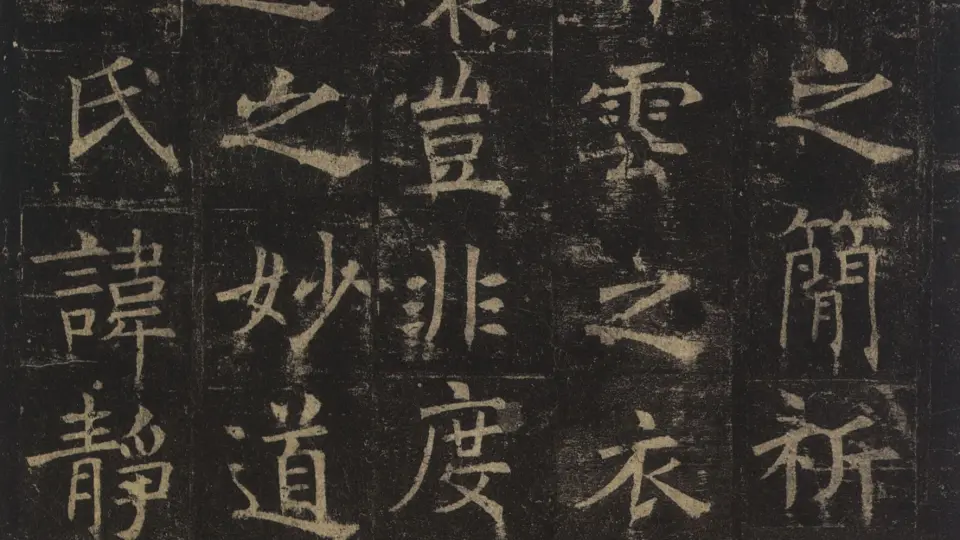 之簡祈
雲之衣
豈非度
之妙道
氏諱靜